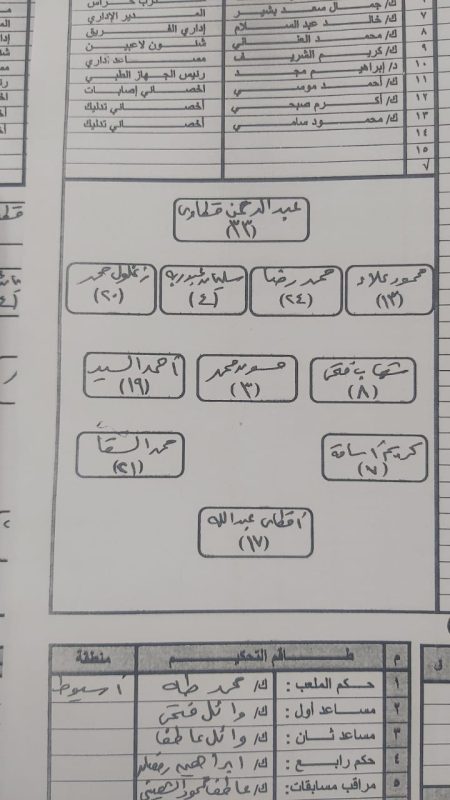 ك/ جمال سعد بشير
٧ ك/ خالد عبد السلام المدير الإداري
٨ ك/ محمد إداري الفريق
٩ ك/ كريم الشريف شئون لاعبين
١٠ د/ إبراهيم مجد مساعد إداري
١١ ك/ أحمد موسي رئيس الجهاز الطبي
١٢ ك/ أكرم صبحي اخصائي إصابات
١٣ ك/ محمود سامي أخصائي تدليك
أخصائي تدليك
١٤
١٥
٧
عبد الرحمن قطاوى
(٣٣)
محمود علاء
(١٣)
محمد رضا
(٢٤)
سليمان
(٤)
زغلول محمد
(٢٠)
شهاب فتحى
(٨)
محمد
(٣)
أحمد السيد
(١٩)
كريم أسامة
(٧)
محمد السقا
(٢١)
عبد الله
(١٧)
م طاقم التحكيم منطقة
١ حكم الملعب : ك/ محمد طه أسيوط
٢ مساعد أول : ك/ وائل فتحى
٣ مساعد ثان : ك/ وائل عاطف
٤ حكم رابع : ك/ ابراهيم رمضان
٥ مراقب مسابقات : ك/ عاطف محمود